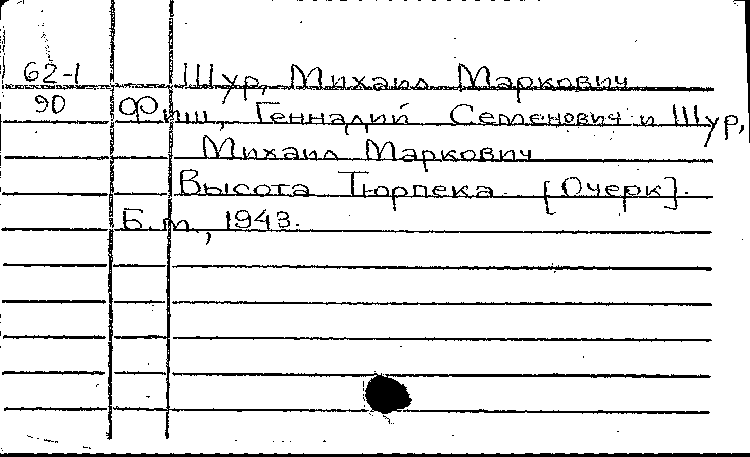 62-1 Шур, Михаил Маркович
90 Фиш, Геннадий Семенович и Шур,
Михаил Маркович
Высота Тюрпека [Очерк].
Б.m., 1943.